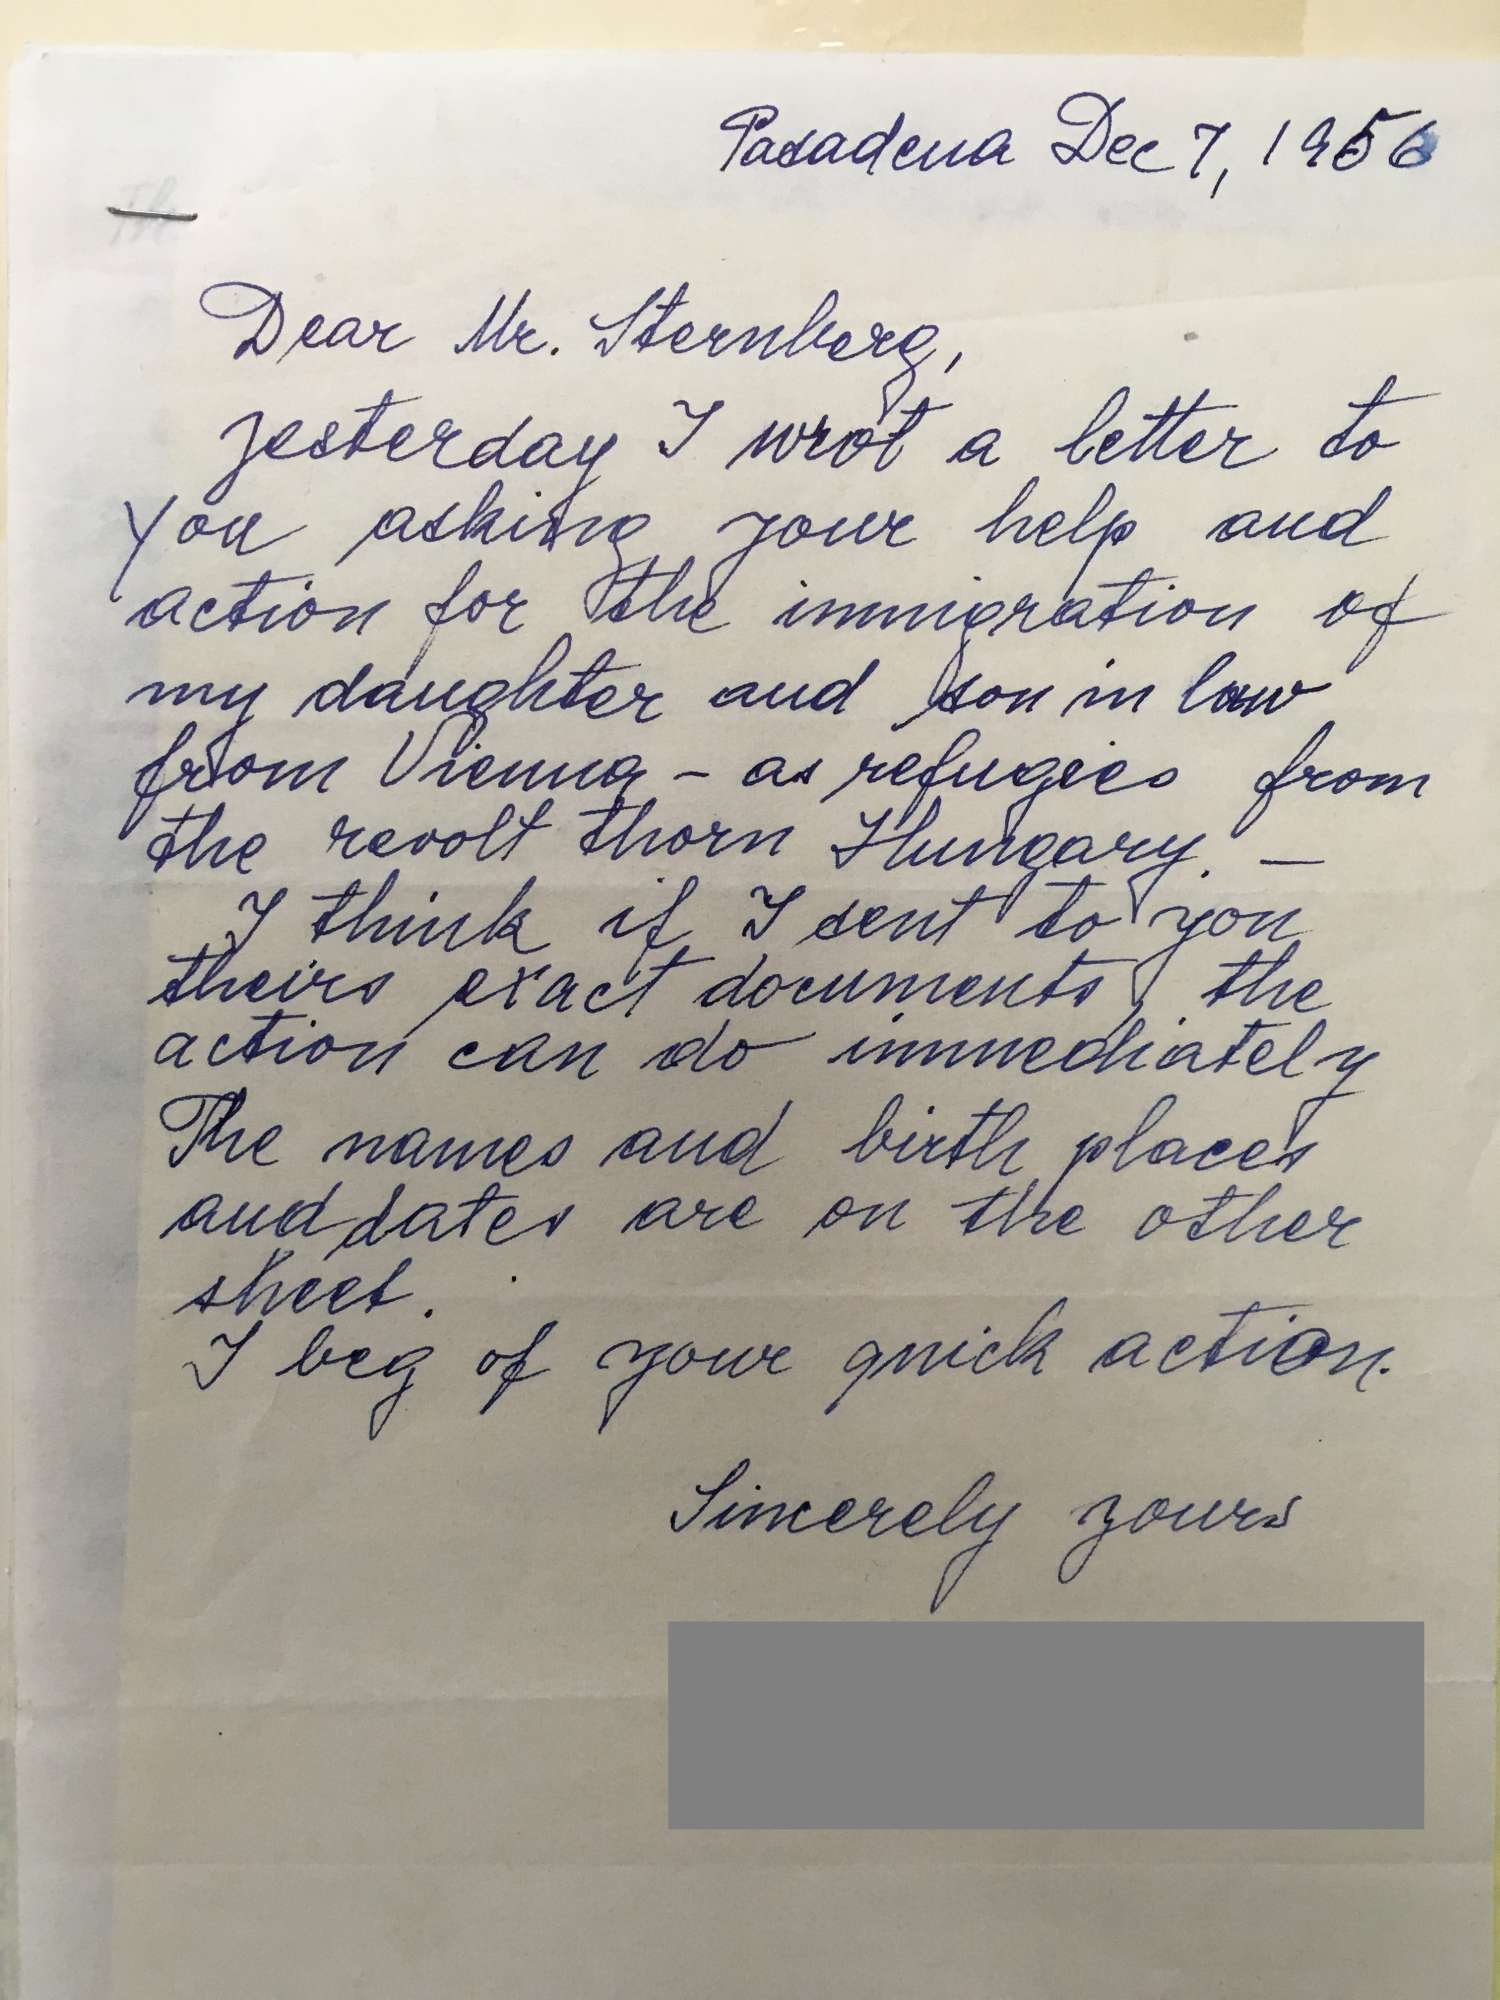 Pasadena Dec 7, 1956
Dear Mr. Sternberg,
yesterday I wrot a letter to
you asking your help and
action for the immigration of
my daughter and son in law
from Vienna - as refugies from
the revolt thorn Hungary. -
I think if I sent to you
theirs exact documents, the
action can do immediately
The names and birth places
and dates are on the other
sheet.
I beg of your quick action.
Sincerely yours